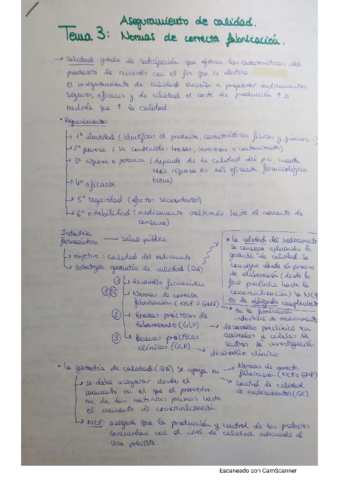 Aseguramiento de calidad.
Tema 3: Normas de correcta fabricación.
→ calidad: grado de satisfacción que ofrecen las características del
producto de acuerdo con el fin que se destina
El aseguramiento de calidad enseña a preparar medicamentos
seguros, eficaces y de calidad el coste de producción ↑ a
medida que ↑ la calidad.
• Requerimientos:
→ 1º identidad (identificar el producto, características físicas y químicas)
→ 2º pureza (su contenido: trazas, contaminantes)
→ 3º riqueza o potencia (depende de la calidad del p.a, cuanta
más riqueza es más eficacia farmacológica
tiene)
→ 4º eficacia
→ 5º seguridad (efectos secundarios)
→ 6º estabilidad (medicamento inalterado hasta el momento de
consumo)
Industria
farmacéutica → salud pública
→ objetivo: calidad del medicamento
→ estrategia: garantía de calidad (QA)
① desarrollo farmacéutico
Normas de correcta
fabricación (NCF o GMP)
② Buenas prácticas de
laboratorio (GLP)
③ Buenas prácticas
clínicas (GCP)
• la calidad del medicamento
se consigue aplicando la
garantía de calidad. Se
consigue desde el proceso
de elaboración (desde la
fase práctica hasta la
comercialización) la NCF
es de obligado cumplimiento
en la fabricación
industrial de medicamentos
→ desarrollo preclínico con
animales y calidad de
centros de investigación
desarrollo clínico
• la garantía de calidad (QA) se apoya en
→ Normas de correcta
fabricación (NCF o GMP)
→ control de calidad
de medicamentos (QC)
→ se debe asegurar desde el
momento en el que el proveedor
de las materias primas hasta
el momento de comercialización
→ NCF asegura que la producción y control de los productos
concuerdan con el nivel de calidad adecuado al
uso previsto.
Escaneado con CamScanner